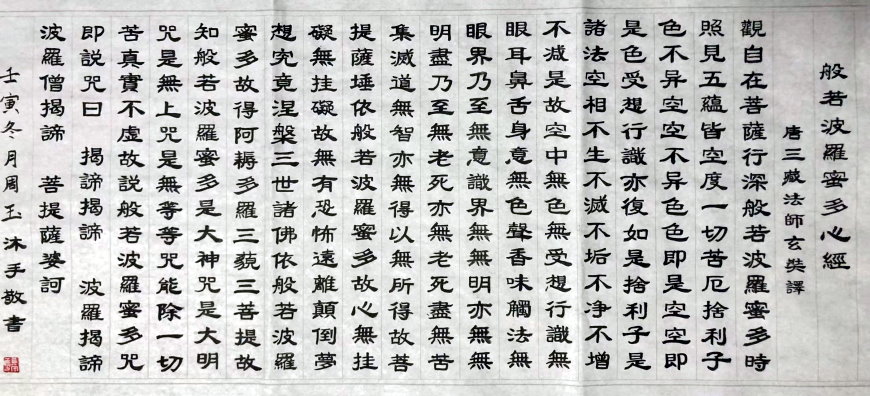 般若波羅蜜多心經
唐三藏法師玄奘譯
觀自在菩薩行深般若波羅蜜多時
照見五蘊皆空度一切苦厄捨利子
色不异空空不异色色即是空空即
是色受想行識亦復如是捨利子是
諸法空相不生不滅不垢不净不增
不减是故空中無色無受想行識無
眼耳鼻舌身意無色聲香味觸法無
眼界乃至無意識界無無明亦無無
明盡乃至無老死亦無老死盡無苦
集滅道無智亦無得以無所得故菩
提薩埵依般若波羅蜜多故心無挂
礙無挂礙故無有恐怖遠離顛倒夢
想究竟涅槃三世諸佛依般若波羅
蜜多故得阿耨多羅三藐三菩提故
知般若波羅蜜多是大神咒是大明
咒是無上咒是無等等咒能除一切
苦真實不虛故説般若波羅蜜多咒
即説咒曰 揭諦揭諦 波羅揭諦
波羅僧揭諦 菩提薩婆訶
壬寅冬月周玉沐手敬書